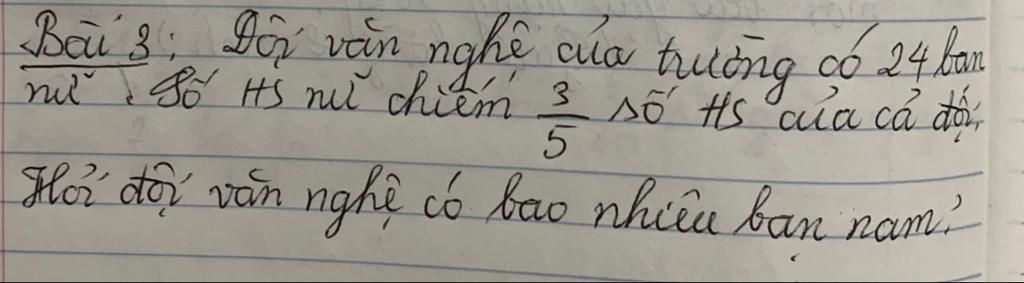 Bài 3: Đội văn nghệ của trường có 24 bạn
nữ. Số HS nữ chiếm 3/5 số HS của cả đội.
Hỏi đội văn nghệ có bao nhiêu bạn nam?